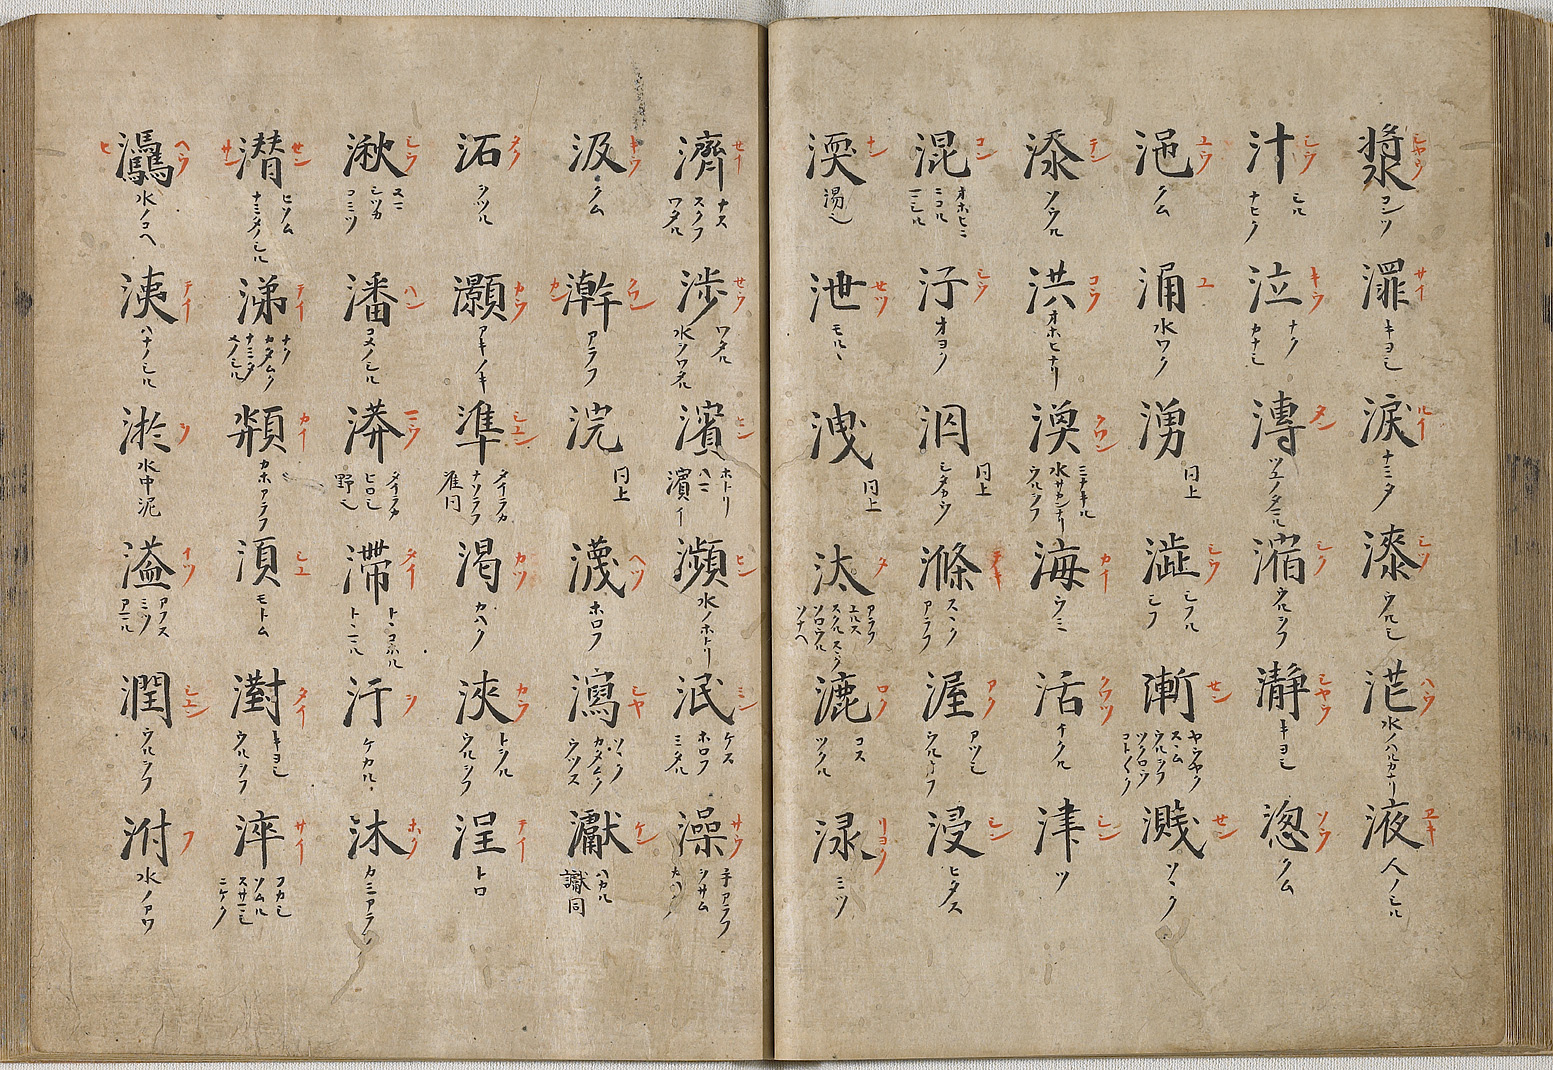 漿 シヤウ コンツ
サイ キヨシ
涙 ルイ ナミタ
漆 シツ ウルシ
水ノハルカナリ
液 エキ 人ノシル
汁 シウ シル ナヒク
泣 キウ ナク カナシ
漙 タン
潪 ウルシフ
瀞 シヤウ キヨシ
ソウ クム
浥 ユウ クム
涌 ユ 水ワク
湧 同上
澁 シウ シフル シフ
漸 セン ヤウヤク スヽム ウルシフ ツクロウ
濺 セン ソヽク
添 テン ソウル
洪 コウ オホヒナリ
渙 クワン ミチキル 水サカンナリ ウルシフ
海 カイ ウミ
活 クワツ イクル
津 シン ツ
混 コン オホヒニ ニコル
汙 オヨク
泅 同上
滌 テキ スヽク アラフ
渥 アク アツシ ウルオフ
浸 シン ヒタス
湯也
泄 セツ モル
洩 同上
汰 タ アラフ エルス スクル ソロウル ソナヘ
漉 ロク コス ツクル
渌 リヨク ミツ
濟 セイ ナス スクフ ワタル
渉 セウ ワタル 水ヲワタル
濱 ヒン ホトリ ハマ 濱イ
瀕 ヒン 水ノホトリ
泯 ミン ケス ホロフ ミタル
澡 サウ 手アラフ
汲 キウ クム
澣 クワン アラフ
浣 同上
滅 ヘツ ホロフ
瀉 シヤ ソヽク カタムク ウツス
ケン ハカル 讞同
沰 タク シツル
灝 カウ アキノキ
準 シユン タイラカ ナソラフ 准同
渇 カツ カハク
浹 カウ トヲル ウルシフ
湼 テイ トロ
湫 シウ スマ シツカ コミツ
潘 ハン コメノシル
漭 マウ タイラカ ヒロシ 野也
滯 タイ トヽコホル トヽマル
汗 ケカル
沐 ホク カミアラフ
潸 セン サン ヒソム ナミタノシル
涕 テイ ナク カタムク ナミタ メノシル
カイ カホアラフ
湏 シユ モトム
濧 タイ キヨシ ウルシフ
淬 サイ フカシ ソムル スサマシ ニケク
ヘウ ヒ 水ノコヘ
洟 テイ ハナノシル
淤 ヲ 水中泥
溢 イツ アフス ミツ アマル
潤 シユン ウルシフ
泭 フ 水ノアワ